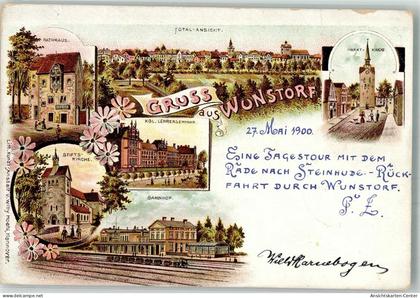 RATHHAUS.
TOTAL-ANSICHT.
MARKT-KIRCHE
GRUSS
aus WUNSTORF
27. Mai 1900.
KGL. LEHRERSEMINAR.
Eine Tagestour mit dem
Rade nach Steinhude.-Rück-
fahrt durch Wunstorf.
STIFTS-
KIRCHE.
BAHNHOF.